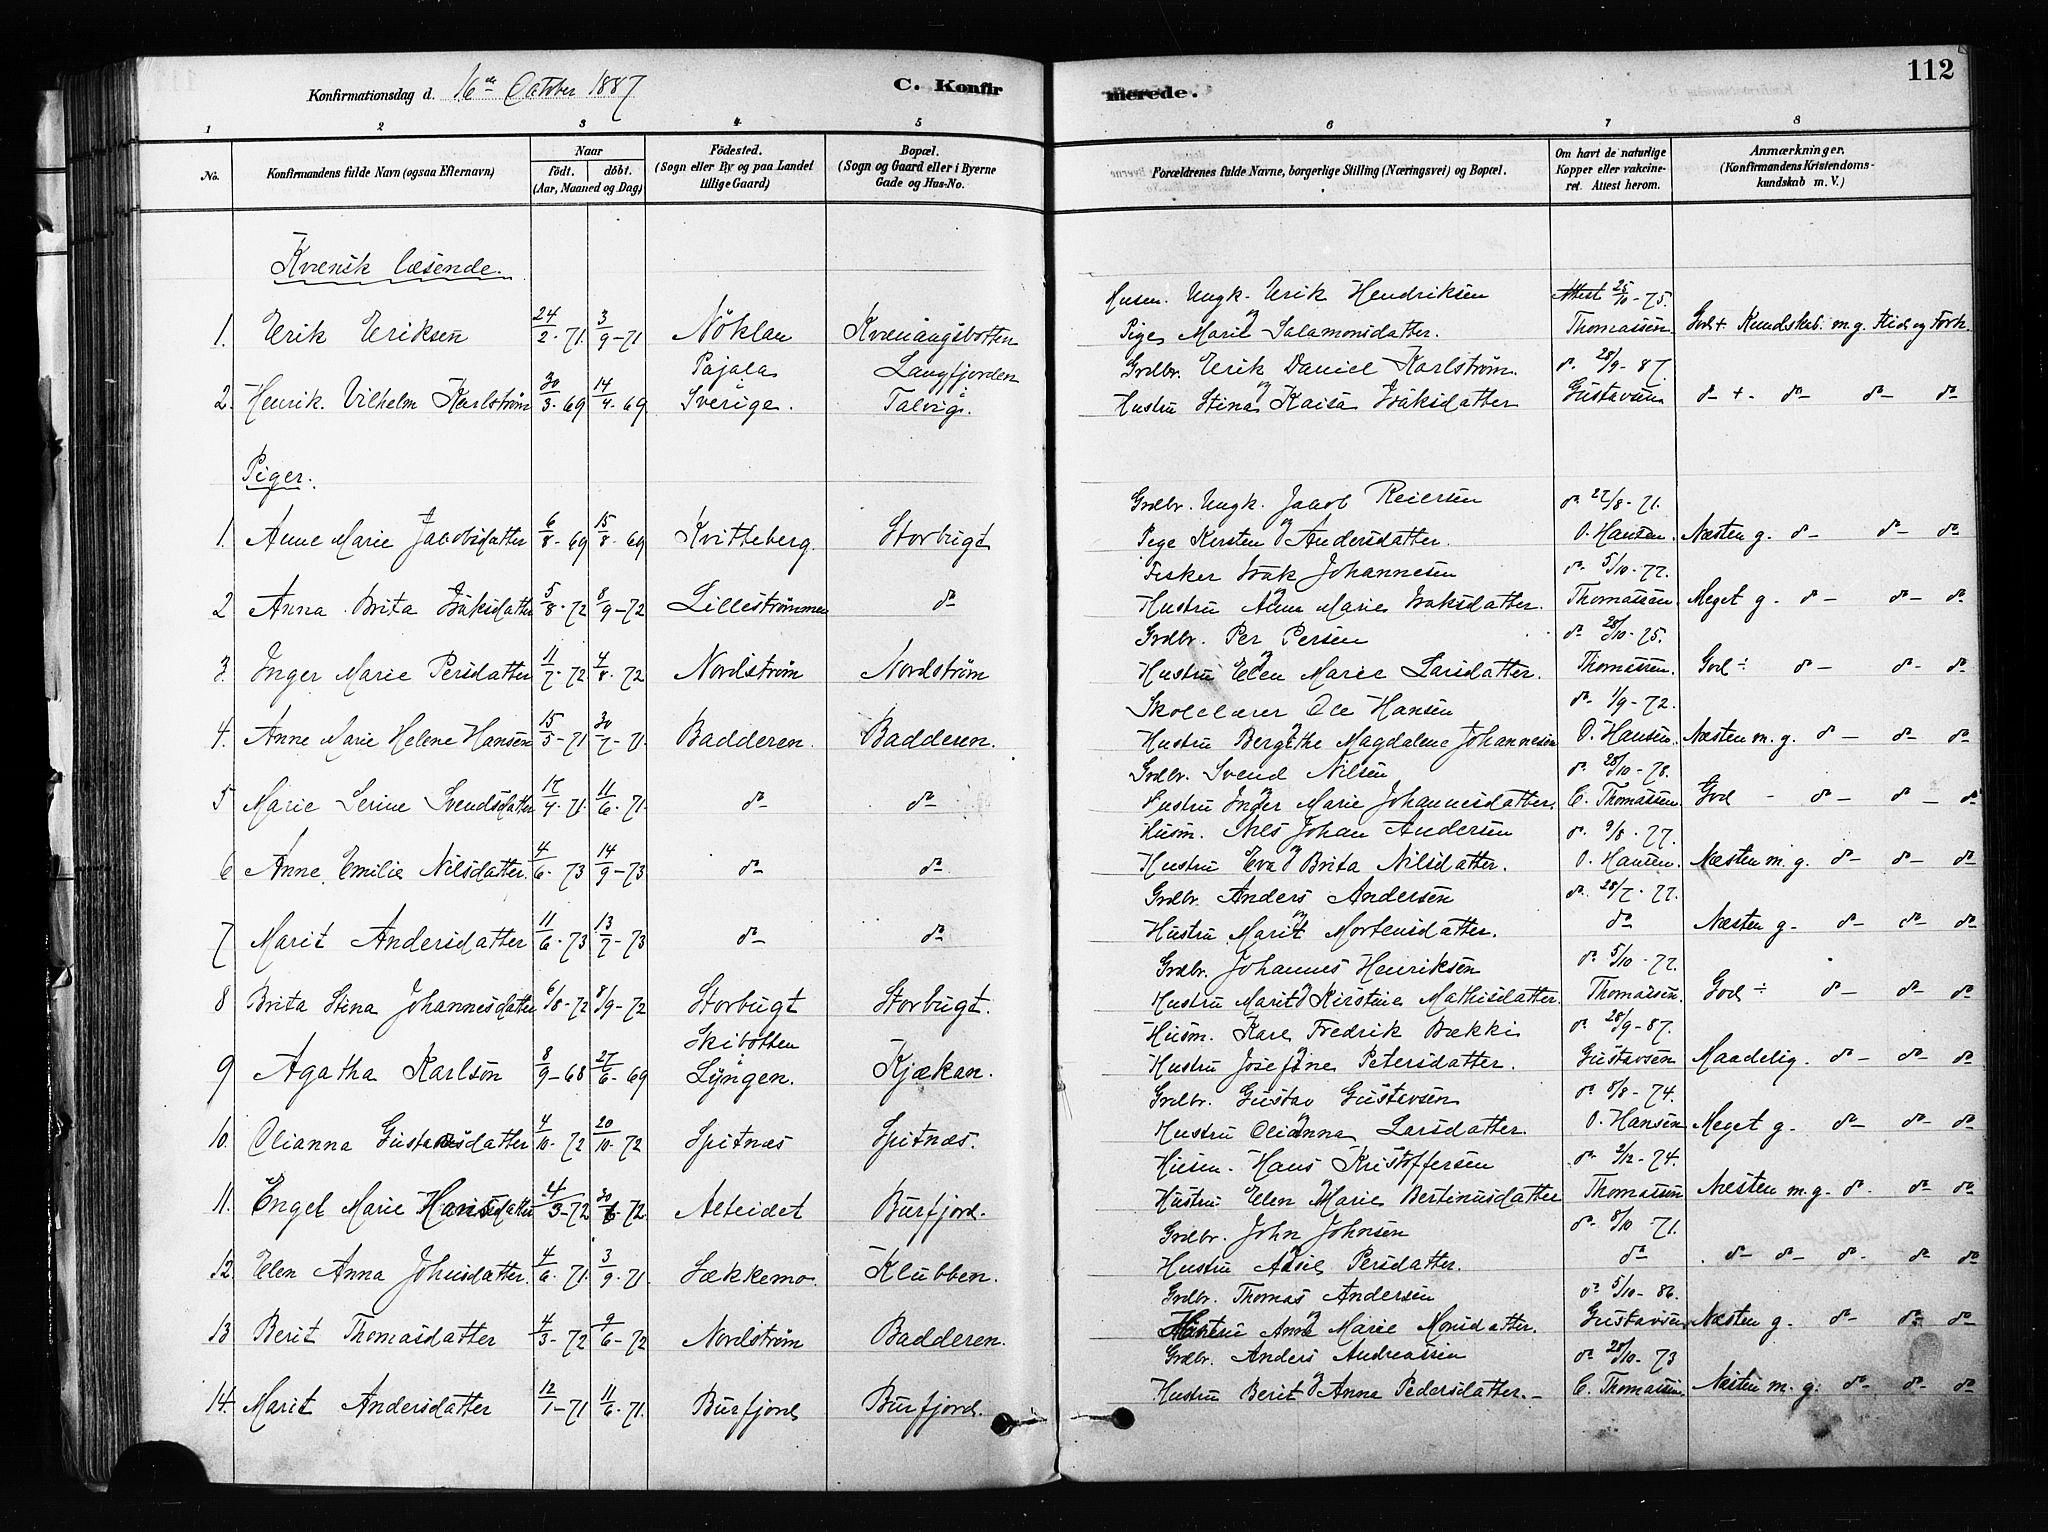 112
Konfirmationsdag d. 16de October 1887 C. Konfirmerede.
1 2 3 4 5 6 7 8
No. Konfirmandens fulde Navn (ogsaa Efternavn) Naar födt. döbt. (Aar, Maaned og Dag) Födested. (Sogn eller By og paa Landet tillige Gaard) Bopæl. (Sogn og Gaard eller i Byerne Gade og Hus-No. Forældrenes fulde Navne, borgerlige Stilling (Næringsvei) og Bopæl. Om havt de naturlige Kopper eller vakcineret. Attest herom. Anmærkninger. (Konfirmandens Kristendomskundskab m. V.)
Kvensk læsende.
Husm. Ungk. Erik Hendriksen Attest 25/10-75.
1. Erik Eriksen 24/2-71. 3/9-71 Nöklan Kvenangsbotten Pige Marit Salamonsdatter. Thomassen. God + Kundskab. m.g. Flid og Forh.
Pajala Langfjorden Grdbr. Erik Daniel Karlström. do 28/9-87
2. Henrik Vilhelm Karlström 30/3-69 14/4-69 Sverige. Talvig. og Hustru Stina Kaisa Isaksdatter Gustavsen do + do do do
Piger.
Grdbr. Ungk. Jacob Reiersen do 27/8-71.
1. Anne Marie Jacobsdatter 6/8-69 15/8-69 Kvitteberg. Storbugt og Pige Kirsten Andersdatter. O. Hansen. Næsten g. do do do
Fisker Isak Johannesen do 5/10-72.
2 Anna Brita Isaksdatter 5/8-72 8/9-72 Lilleströmmen do og Hustru Anne Marie Isaksdatter. Thomassen. Meget g. do do do
Grdbr. Per Persen do 28/10-75.
3. Inger Marie Persdatter 11/7-72 4/8-72 Nordström Nordström og Hustru Elen Marie Larsdatter. Thomassen. God ÷ do do do
Skolelærer Ole Hansen do 1/9-72.
4. Anne Marie Helene Hansen 15/5-71 30/7-71. Badderen. Badderen. og Hustru Bergithe Magdalene Johannesen O. Hansen. Næsten m. g. do do do
Grdbr. Svend Nilsen do 28/10-78.
5 Marie Serine Svendsdatter 17/4-71 11/6-71. do do og Hustru Inger Marie Johannesdatter. C. Thomassen. God - do do do
Husm. Nils Johan Andersen do 9/8-77.
6 Anne Emilie Nilsdatter. 4/6-73 14/9-73 do do og Hustru Eva Brita Nilsdatter. O. Hansen. Næsten m. g. do do do
Grdbr. Anders Andersen do 28/7-77.
7 Marit Andersdatter 11/6-73 13/7-73 do do og Hustru Marit Mortensdatter. do Næsten g. do do do
Grdbr. Johannes Henriksen do 5/10-72.
8 Brita Stina Johannesdatter 6/8-72 8/9-72 Storbugt Storbugt. og Hustru Marit Kirstine Mathisdatter. Thomassen. God ÷ do do do
Skibotten Husm. Karl Fredrik Bækki do 28/9-87.
9 Agatha Karlson 8/9-68 27/6-69 Lyngen. Kjækan. og Hustru Josefine Petersdatter. Gustavsen Maadelig. do do do
Grdbr. Gustav Gustavsen do 8/8-74.
10. Olianna Gustavsdatter 4/10-72 20/10-72 Spitnæs Spitnæs. og Hustru Olianna Larsdatter. O. Hansen Meget g. do do do
Husm. Hans Kristoffersen do 2/12-74.
11. Engel Marie Hansdatter 4/3-72 30/6-72. Alteidet Burfjord. og Hustru Elen Marie Bertinusdatter Thomassen Næsten m. g. do. do do
Grdbr. John Johnsen do 8/10 71.
12. Elen Anna Johnsdatter. 4/6-71. 3/9-71. Sækkemo. Klubben. og Hustru Adsil Persdatter. do do do do do do
Grdbr. Thomas Andersen do 5/10-86.
13 Berit Thomasdatter 4/3-72 9/6-72 Nordström Badderen. og Hustru Anne Marie Monsdatter. Gustavsen. Næsten g. do do do
Grdbr. Anders Andreassen do 28/10-73
14. Marit Andersdatter 12/1-71 11/6-71. Burfjord Burfjord. og Hustru Berit Anna Pedersdatter. - C. Thomassen. Næsten m. g. do do do